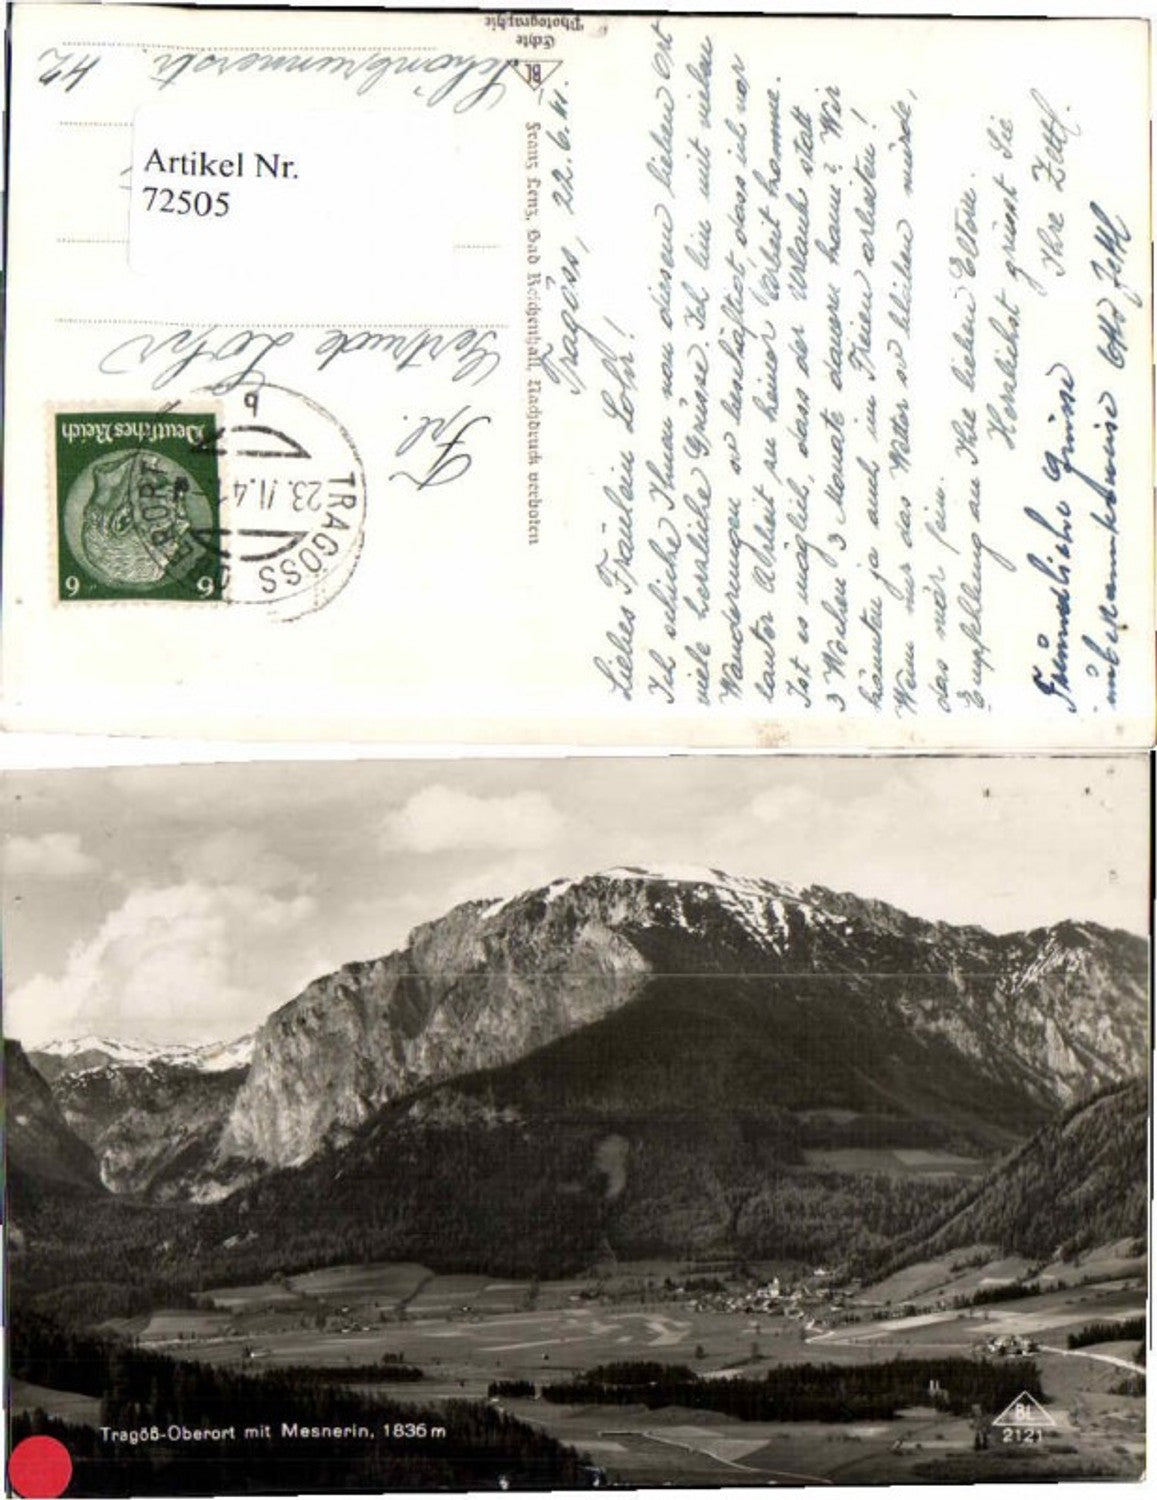 Tragöss, 22. 6. 41.
Liebes Fräulein Lohr!
Ich schicke Ihnen von diesem lieben Ort
viele herzliche Grüsse. Ich bin mit vielen
Wanderungen so beschäftigt, dass ich vor
lauter Arbeit zu keiner Arbeit komme.
Ist es möglich, dass der Urlaub statt
3 Wochen 3 Monate dauern kann? Wir
könnten ja auch im Freien arbeiten!
Wenn nur das Wetter so bleiben würde,
das wär fein.
Empfehlung an Ihre lieben Eltern.
Herzlichst grüsst Sie
Ihre Zettl.
Freundliche Grüsse
unbekannterweise Otto Zettl
Echte
Photographie
BL
Franz Lenz, Bad Reichenhall, Nachdruck verboten
Frl.
Gertrude Lohr
Schönbrunnerstr. 42
Deutsches Reich
6 6
TRAGÖSS
b
Artikel Nr.
72505
Tragöß-Oberort mit Mesnerin, 1836 m
BL
2121